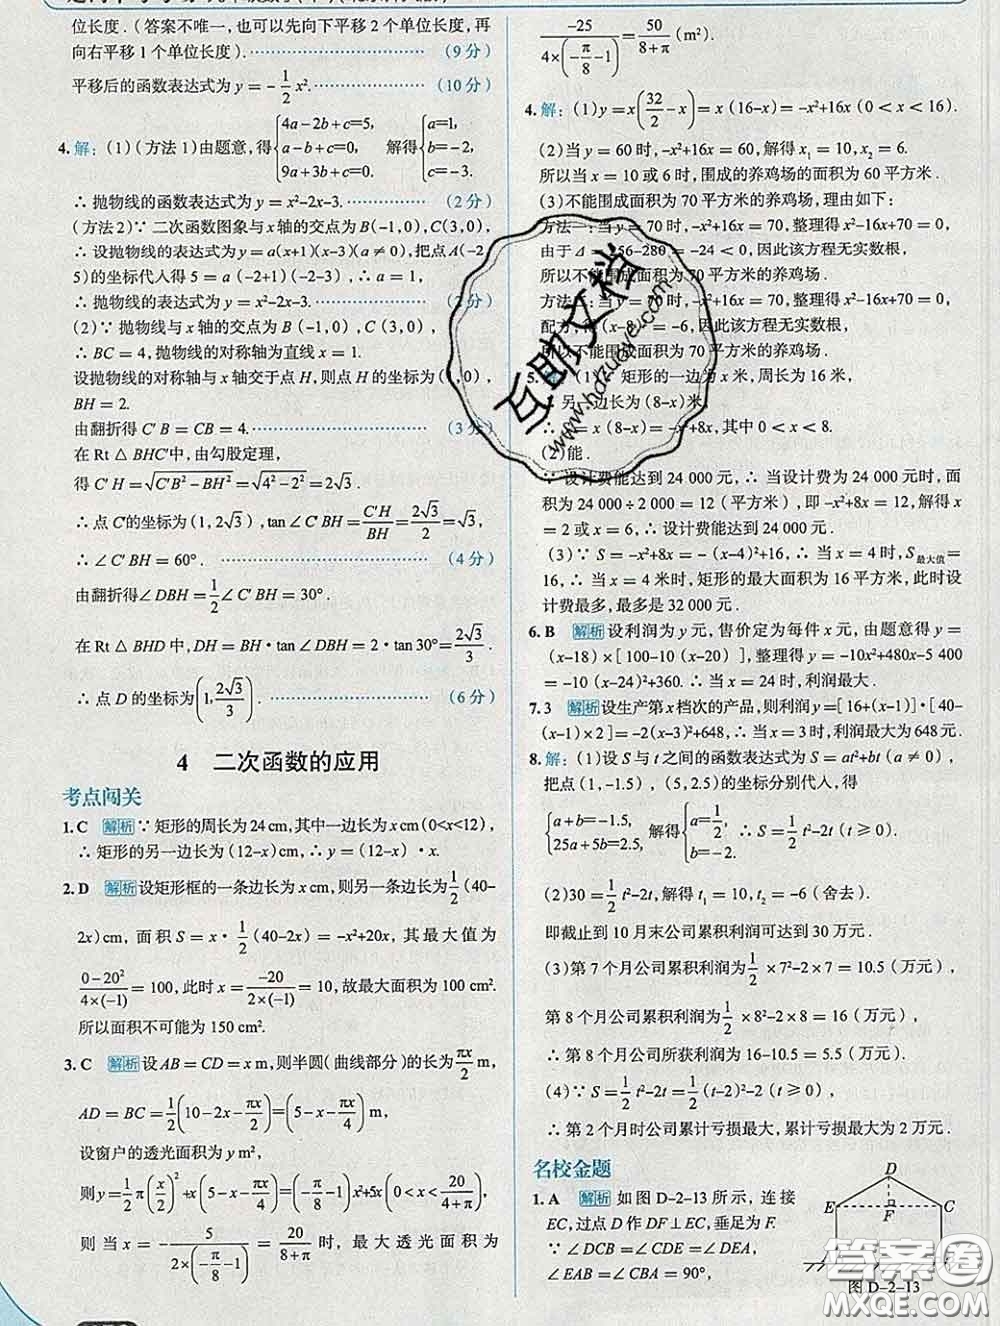 位长度.(答案不唯一,也可以先向下平移2个单位长度,再
向右平移1个单位长度). (9分)
平移后的函数表达式为y=-1/2x². (10分)
4.解:(1)(方法1)由题意,得{4a-2b+c=5, a-b+c=0, 9a+3b+c=0. 解得{a=1, b=-2, c=-3.
∴抛物线的函数表达式为y=x²-2x-3. (2分)
(方法2)∵二次函数图象与x轴的交点为B(-1,0),C(3,0),
∴设抛物线的表达式为y=a(x+1)(x-3)(a≠0),把点A(-2,
5)的坐标代入得5=a(-2+1)(-2-3),∴a=1,
∴抛物线的表达式为y=x²-2x-3. (2分)
(2)∵抛物线与x轴的交点为B(-1,0),C(3,0),
∴BC=4,抛物线的对称轴为直线x=1.
设抛物线的对称轴与x轴交于点H,则点H的坐标为(1,0),
BH=2.
由翻折得C′B=CB=4. (3分)
在Rt△BHC′中,由勾股定理,
得C′H=√(C′B²-BH²)=√(4²-2²)=2√3.
∴点C′的坐标为(1,2√3),tan∠C′BH=C′H/BH=2√3/2=√3.
∴∠C′BH=60°. (4分)
由翻折得∠DBH=1/2∠C′BH=30°.
在Rt△BHD中,DH=BH·tan∠DBH=2·tan30°=2√3/3.
∴点D的坐标为(1,2√3/3). (6分)
4 二次函数的应用
考点闯关
1.C 解析∵矩形的周长为24cm,其中一边长为xcm(0<x<12),
∴矩形的另一边长为(12-x)cm,∴y=(12-x)·x.
2.D 解析设矩形框的一条边长为xcm,则另一条边长为1/2(40-
2x)cm,面积S=x·1/2(40-2x)=-x²+20x,其最大值为
(0-20²)/(4×(-1))=100,此时x=-20/(2×(-1))=10,故最大面积为100cm².
所以面积不可能为150cm².
3.C 解析设AB=CD=xm,则半圆(曲线部分)的长为πx/2m,
AD=BC=1/2(10-2x-πx/2)=(5-x-πx/4)m,
设窗户的透光面积为ym²,
则y=1/2π(x/2)²+x(5-x-πx/4)=(-π/8-1)x²+5x(0<x<20/(4+π)),
则当x=-5/(2×(-π/8-1))=20/(8+π)时,最大透光面积为
-25/(4×(-π/8-1))=50/(8+π)(m²).
4.解:(1)y=x(32/2-x)=x(16-x)=-x²+16x(0<x<16).
(2)当y=60时,-x²+16x=60,解得x₁=10,x₂=6.
所以当x=10或6时,围成的养鸡场的面积为60平方米.
(3)不能围成面积为70平方米的养鸡场,理由如下:
方法一:当y=70时,-x²+16x=70,整理得x²-16x+70=0,
由于Δ=256-280=-24<0,因此该方程无实数根,
所以不能围成面积为70平方米的养鸡场.
方法二:当y=70时,-x²+16x=70,整理得x²-16x+70=0,
配方,得(x-8)²=-6,因此该方程无实数根,
所以不能围成面积为70平方米的养鸡场.
5.解:(1)∵矩形的一边为x米,周长为16米,
∴另一边长为(8-x)米,
∴S=x(8-x)=-x²+8x,其中0<x<8.
(2)能.
∵设计费能达到24 000元,∴当设计费为24 000元时,面
积为24 000÷2 000=12(平方米),即-x²+8x=12,解得x
=2或x=6,∴设计费能达到24 000元.
(3)∵S=-x²+8x=-(x-4)²+16,∴当x=4时,S最大值=
16,∴当x=4米时,矩形的最大面积为16平方米,此时设
计费最多,最多是32 000元.
6.B 解析设利润为y元,售价定为每件x元,由题意得y=
(x-18)×[100-10(x-20)],整理得y=-10x²+480x-5 400
=-10(x-24)²+360.∴当x=24时,利润最大.
7.3 解析设生产第x档次的产品,则利润y=[16+(x-1)]·[40-
(x-1)×2]=-2(x-3)²+648,∴当x=3时,利润最大为648元.
8.解:(1)设S与t之间的函数表达式为S=at²+bt(a≠0),
把点(1,-1.5),(5,2.5)的坐标分别代入,得
{a+b=-1.5, 25a+5b=2.5, 解得{a=1/2, b=-2, ∴S=1/2t²-2t(t≥0).
(2)30=1/2t²-2t,解得t₁=10,t₂=-6(舍去).
即截止到10月末公司累积利润可达到30万元.
(3)第7个月公司累积利润为1/2×7²-2×7=10.5(万元),
第8个月公司累积利润为1/2×8²-2×8=16(万元),
∴第8个月公司所获利润为16-10.5=5.5(万元).
(4)∵S=1/2t²-2t=1/2(t-2)²-2(t≥0),
∴第2个月时公司累计亏损最大,累计亏损最大为2万元.
名校金题
1.A 解析如图D-2-13所示,连接
EC,过点D作DF⊥EC,垂足为F.
∵∠DCB=∠CDE=∠DEA,
∠EAB=∠CBA=90°,
D
E F C
图D-2-13
互助文档
www.hdzuoye.com
答案圈
MXQE.COM